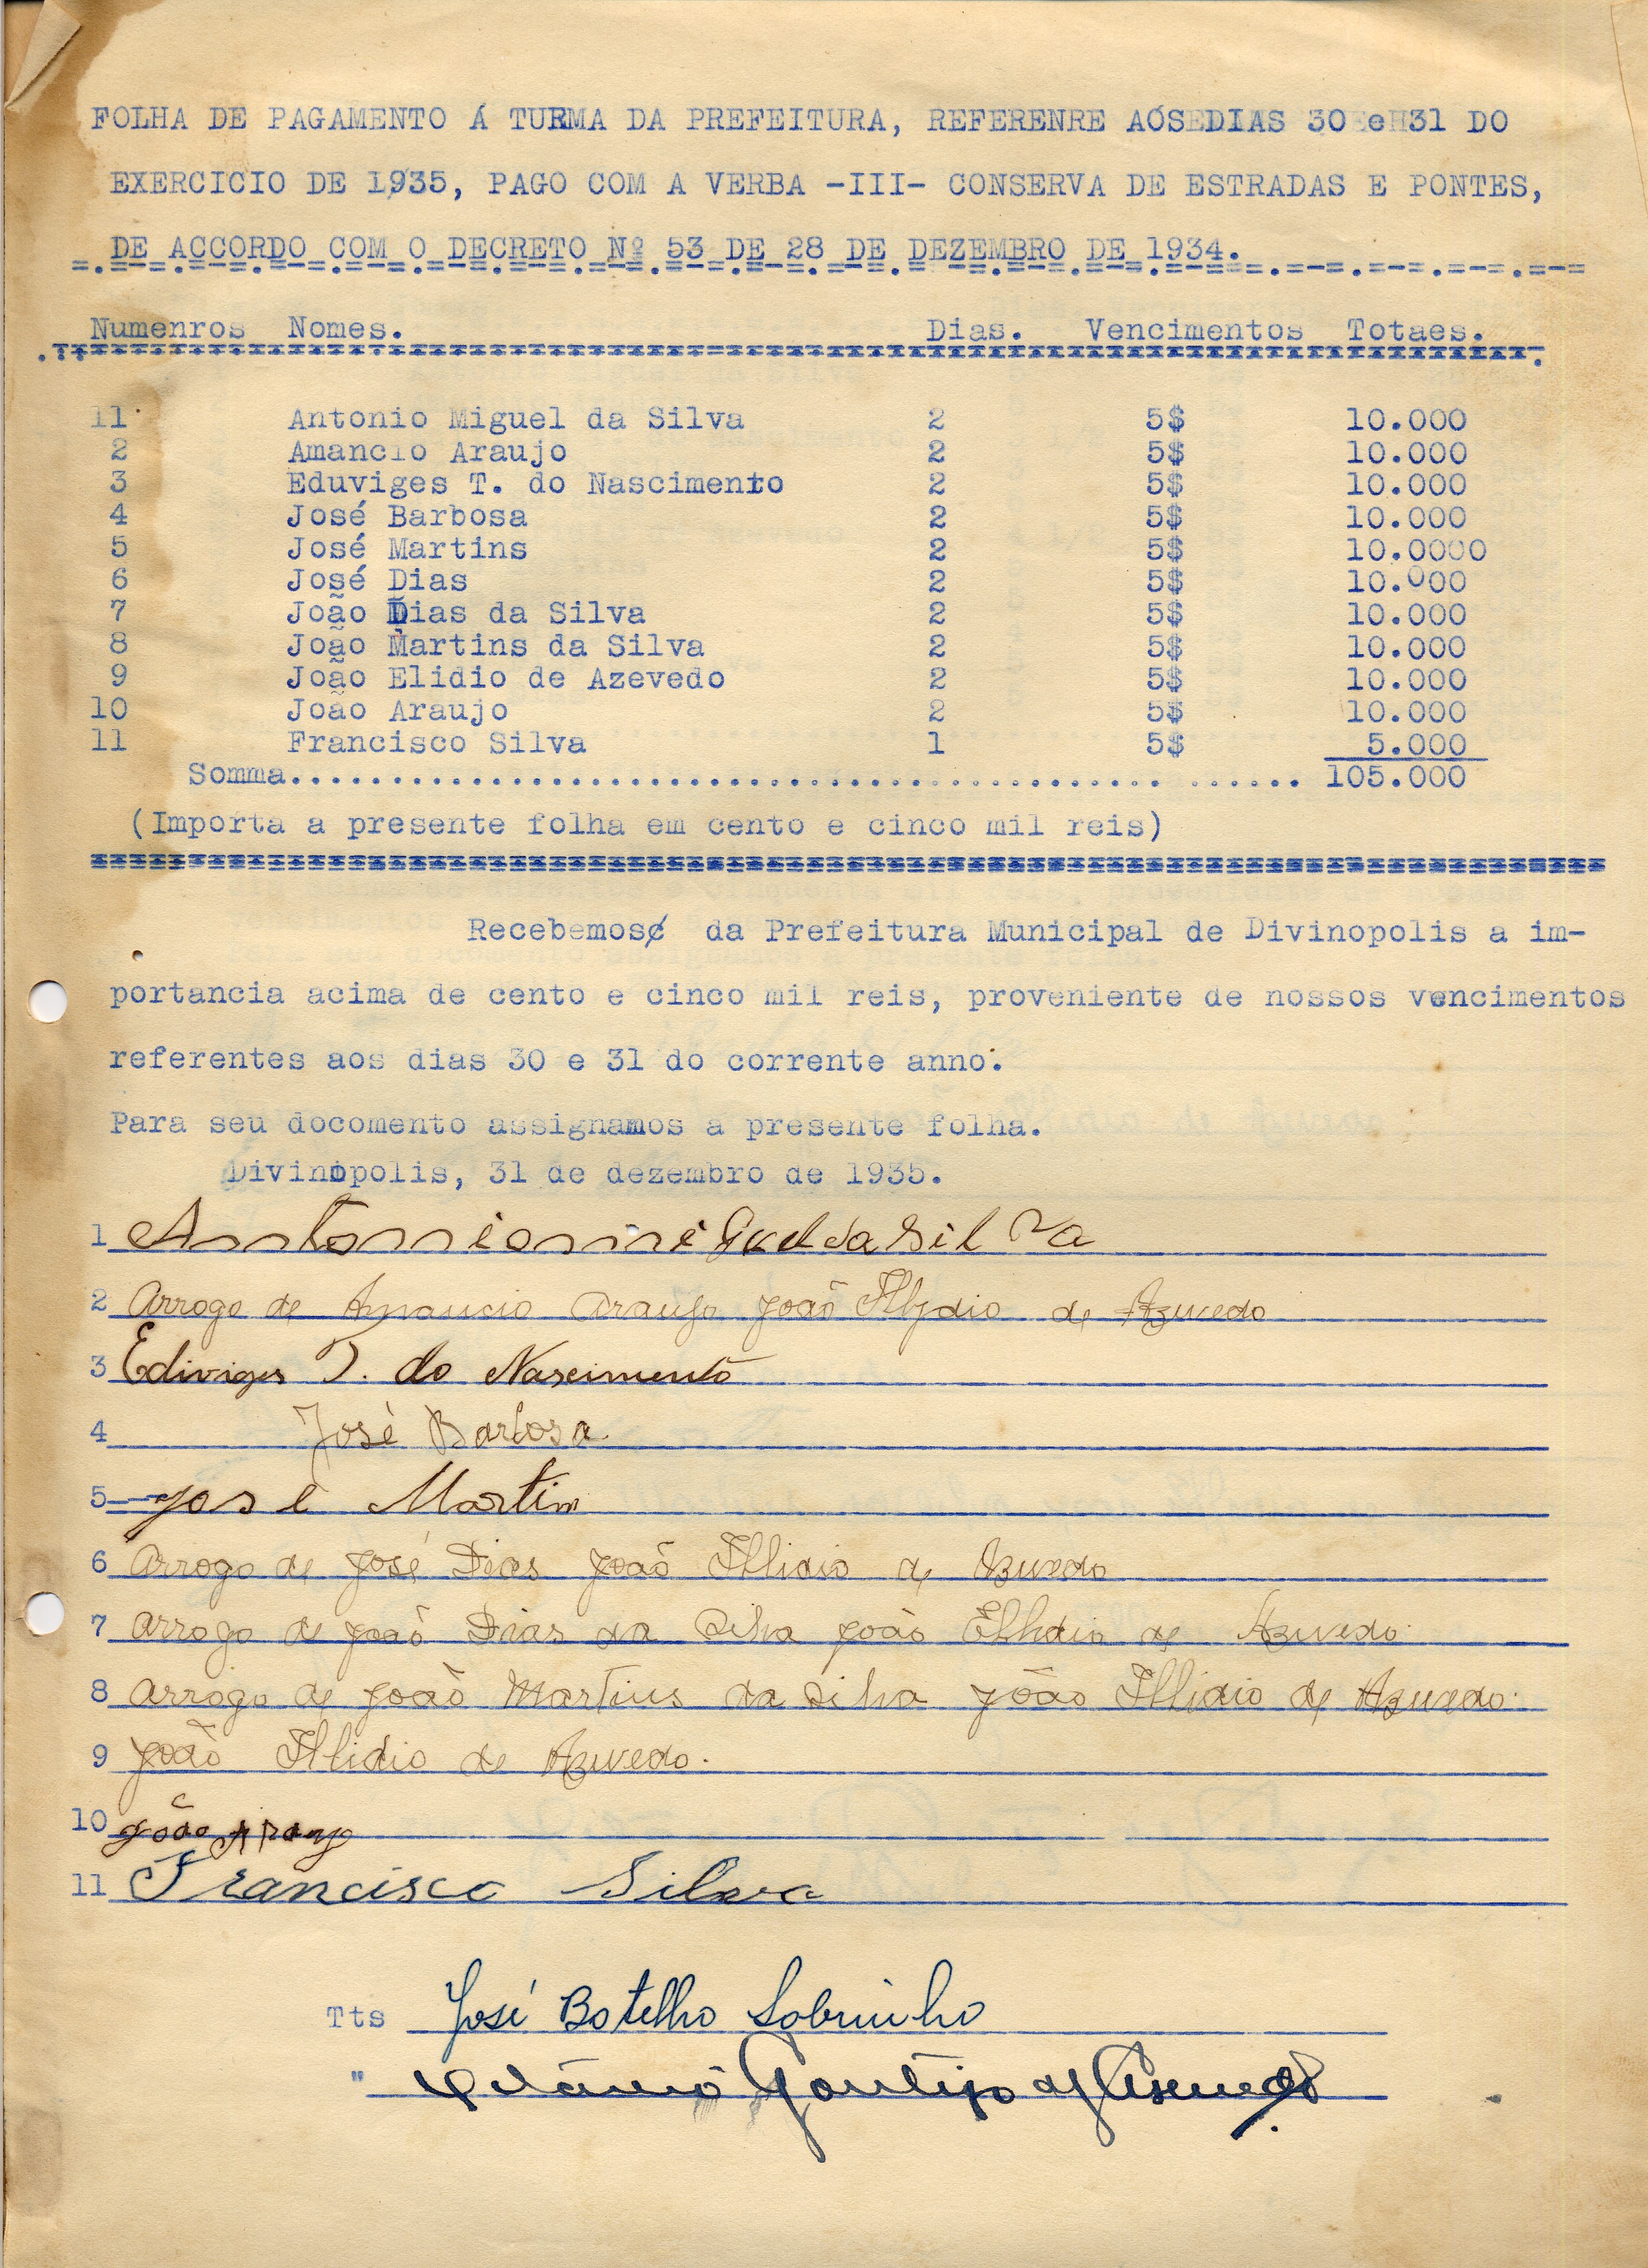 FOLHA DE PAGAMENTO Á TURMA DA PREFEITURA, REFERENRE AOSEDIAS 30 e 31 DO
EXERCICIO DE 1935, PAGO COM A VERBA -III- CONSERVA DE ESTRADAS E PONTES,
DE ACCORDO COM O DECRETO Nº 53 DE 28 DE DEZEMBRO DE 1934.
Numenros Nomes. Dias. Vencimentos Totaes.
11 Antonio Miguel da Silva 2 5$ 10.000
2 Amancio Araujo 2 5$ 10.000
3 Eduviges T. do Nascimento 2 5$ 10.000
4 José Barbosa 2 5$ 10.000
5 José Martins 2 5$ 10.0000
6 José Dias 2 5$ 10.000
7 João Dias da Silva 2 5$ 10.000
8 João Martins da Silva 2 5$ 10.000
9 João Elidio de Azevedo 2 5$ 10.000
10 João Araujo 2 5$ 10.000
11 Francisco Silva 1 5$ 5.000
Somma.................................................. 105.000
(Importa a presente folha em cento e cinco mil reis)
Recebemos da Prefeitura Municipal de Divinopolis a im-
portancia acima de cento e cinco mil reis, proveniente de nossos vencimentos
referentes aos dias 30 e 31 do corrente anno.
Para seu docomento assignamos a presente folha.
Divinopolis, 31 de dezembro de 1935.
1 Antonio miguel da Silva
2 Arrogo de Amancio Araujo João Illydio de Azevedo
3 Ediviges T. do Nascimento
4 José Barbosa
5 José Martin
6 Arrogo de José Dias João Illidio de Azevedo
7 Arrogo de João Dias da Silva João Ellidio de Azevedo
8 Arrogo de João Martins da Silva João Illidio de Azevedo.
9 João Illidio de Azevedo.
10 João Araujo
11 Francisco Silva
Tts José Botelho Sobrinho
" Gontijo de Azevedo